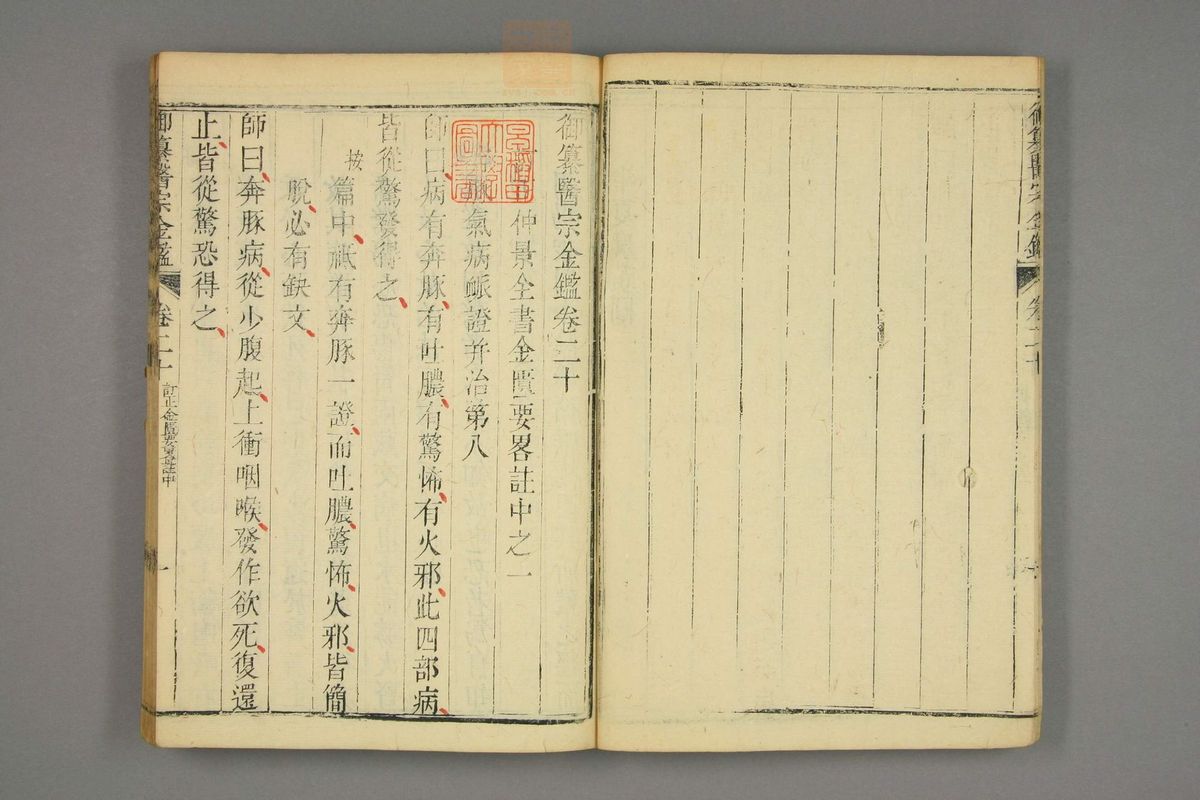 御纂醫宗金鑑卷二十
仲景全書金匱要畧註中之一
氣病脈證并治第八
師曰病有奔豚有吐膿有驚怖有火邪此四部病
皆從驚發得之
按篇中祗有奔豚一證而吐膿驚怖火邪皆簡
脫必有缺文
師曰奔豚病從少腹起上衝咽喉發作欲死復還
止皆從驚恐得之
御纂醫宗金鑑 卷二十 訂正金匱要畧註中 一
御纂醫宗金鑑 卷二十